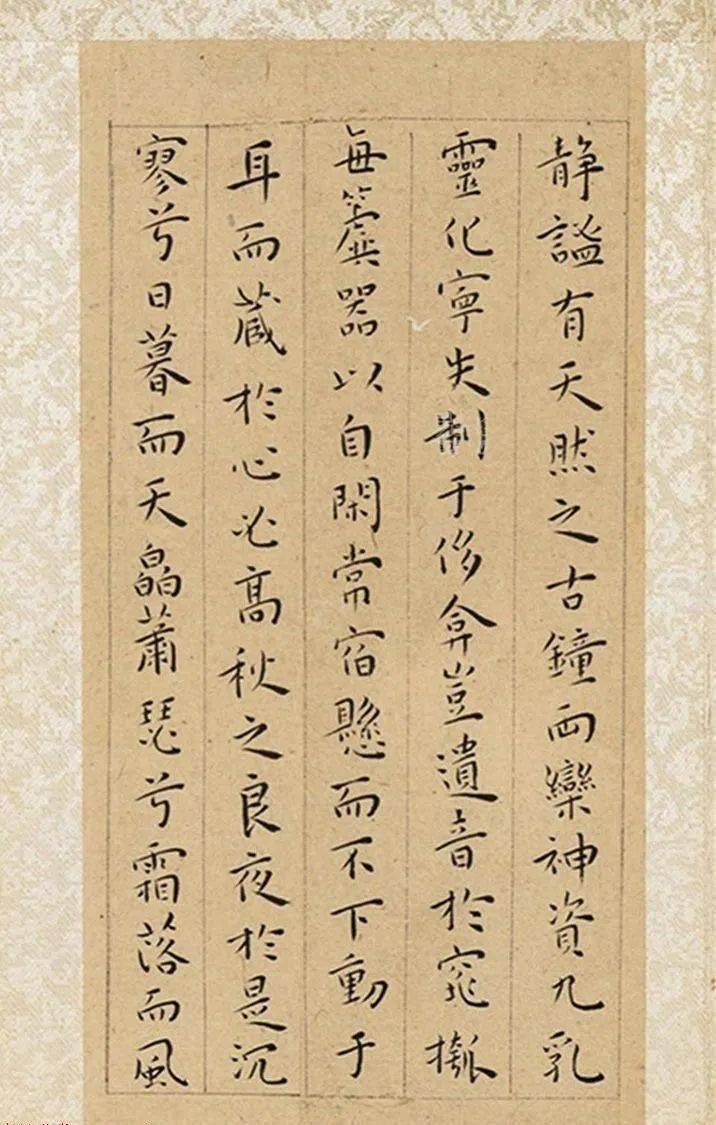 静謐有天然之古鐘兩欒神資九乳
靈化寧失制于侈弇豈遺音於窕槬
每簨器以自閑常宿懸而不下動于
耳而蔵於心必高秋之良夜於是沉
寥兮日暮而天皛蕭瑟兮霜落而風